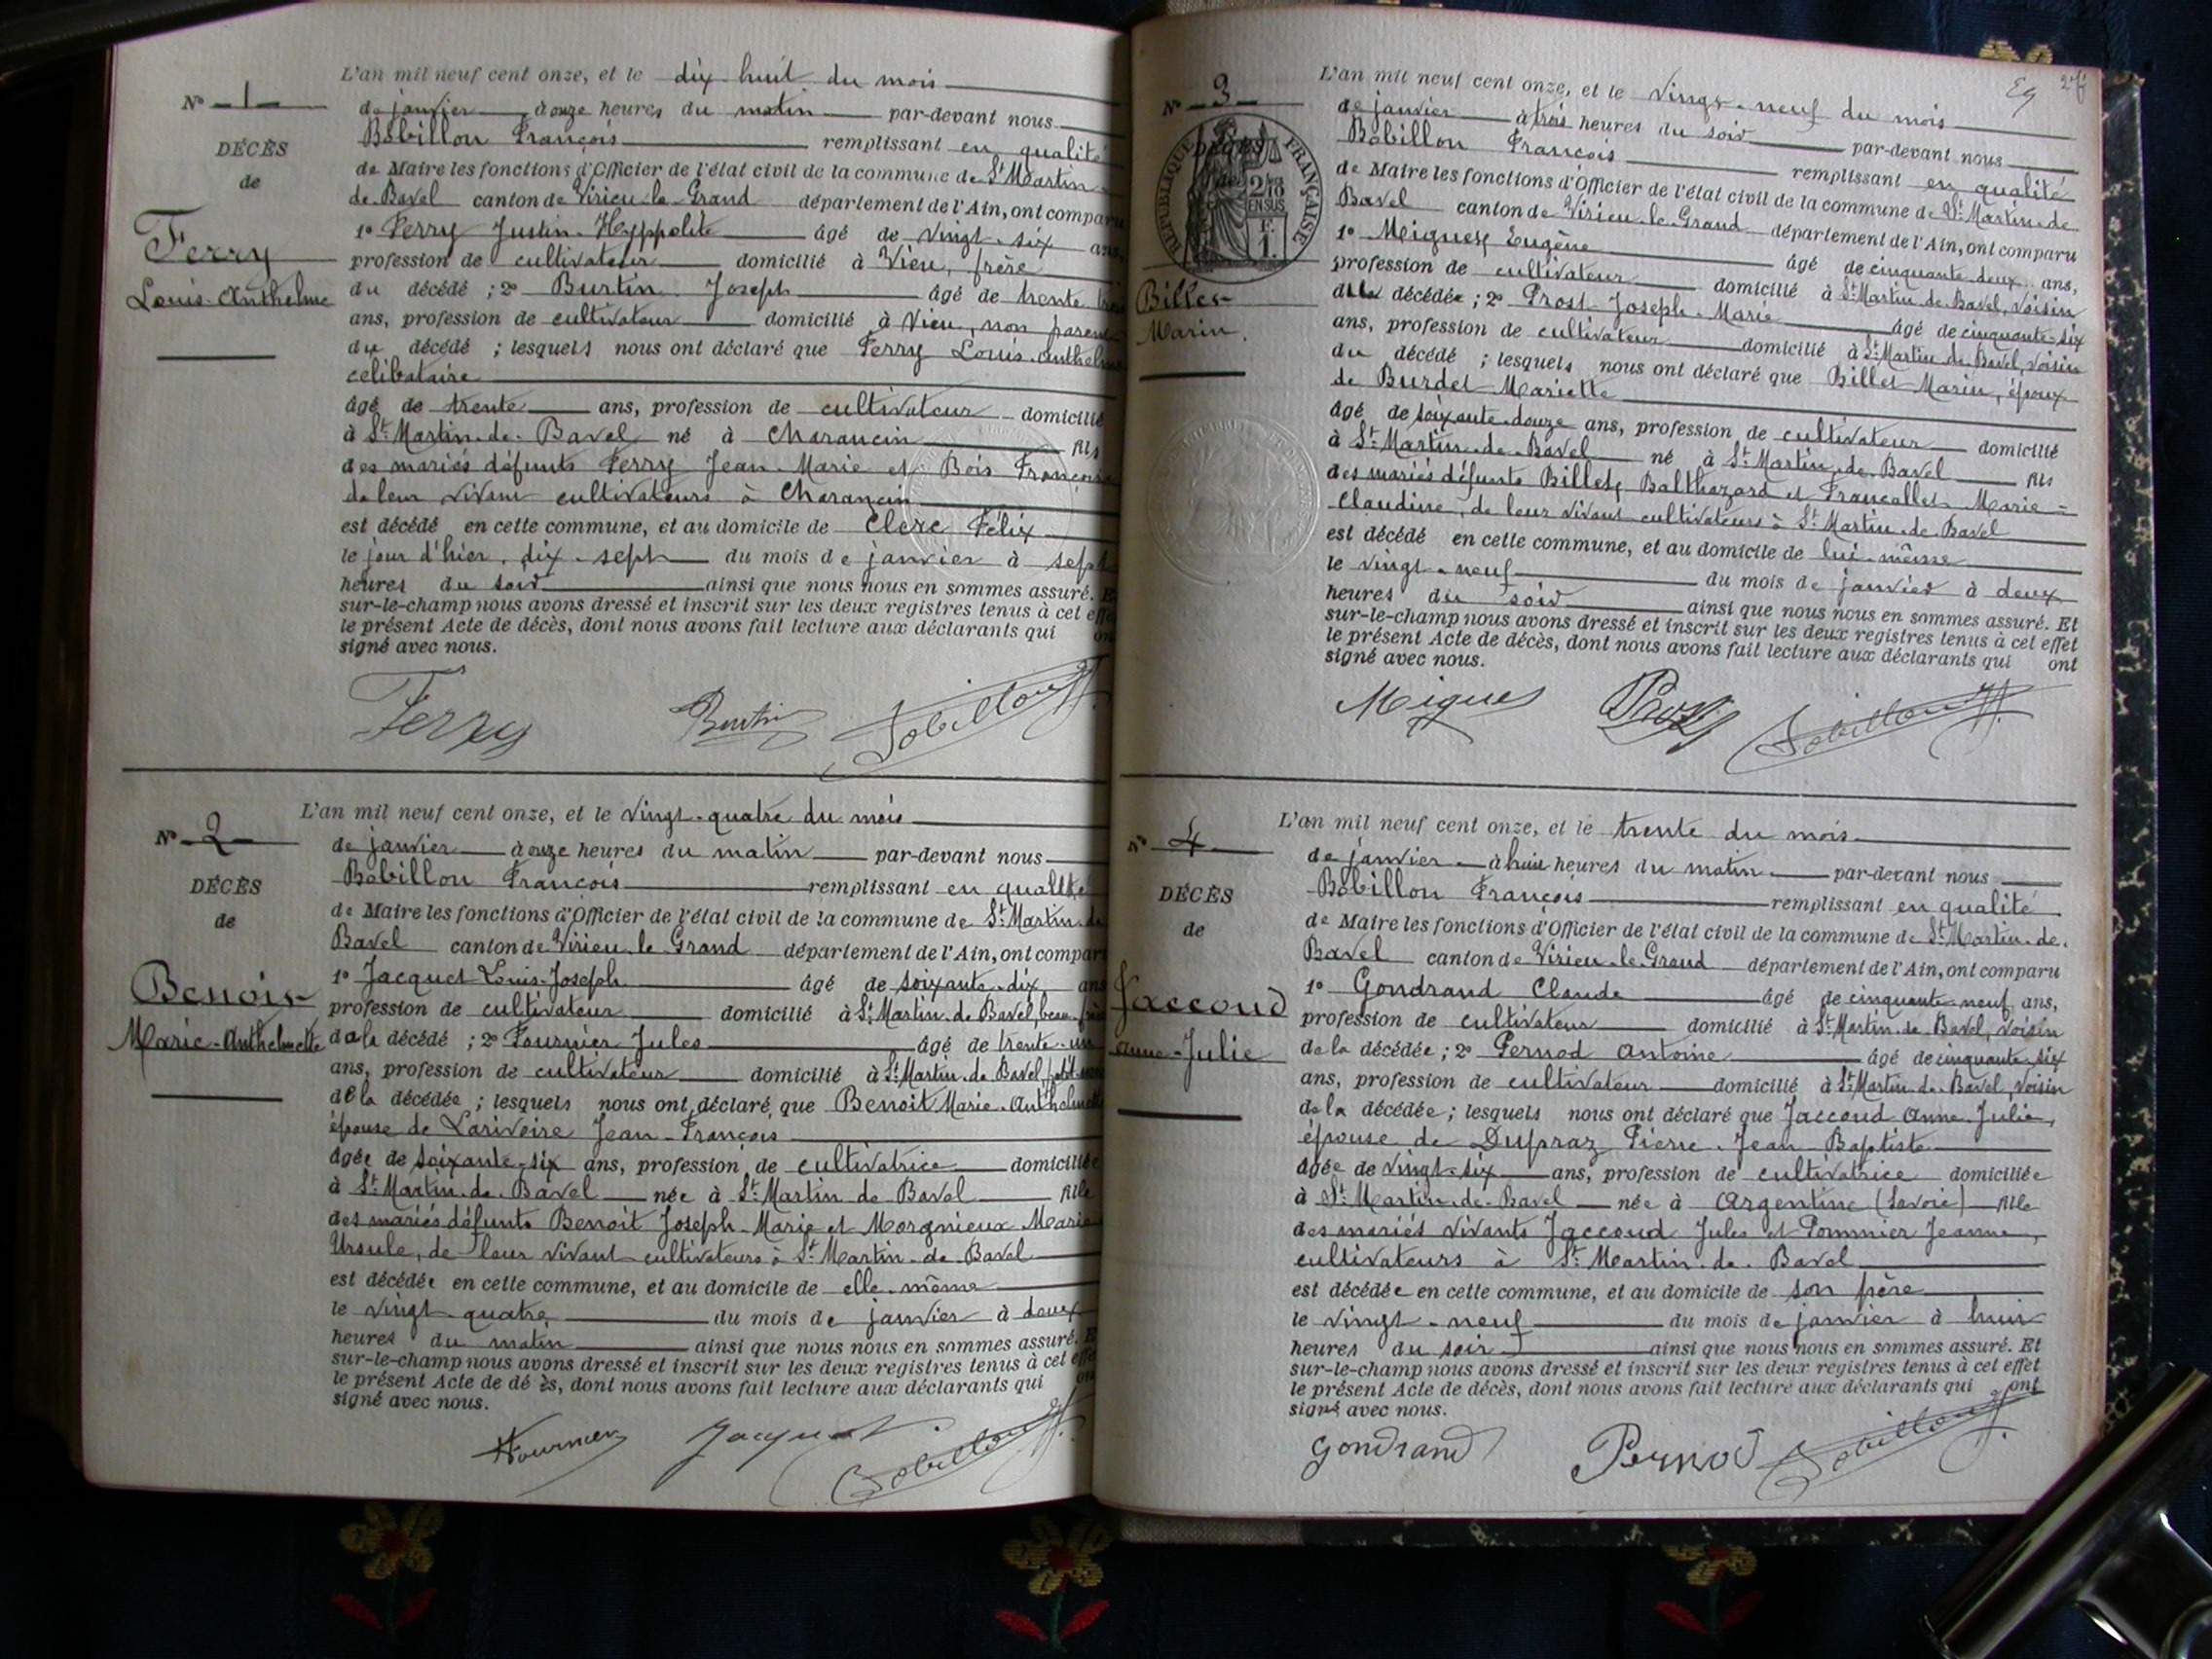 N° 1
DÉCÈS
de
Ferry
Louis-Anthelme
L'an mil neuf cent onze, et le dix-huit du mois
de janvier à onze heures du matin par-devant nous
Bobillon François remplissant en qualité
de Maire les fonctions d'Officier de l'état civil de la commune de St Martin
de Bavel canton de Virieu-le-Grand département de l'Ain, ont comparu
1° Ferry Justin-Hyppolite âgé de vingt-six ans,
profession de cultivateur domicilié à Vieu, frère
du décédé ; 2° Burtin Joseph âgé de trente
ans, profession de cultivateur domicilié à Vieu, non parent
du décédé ; lesquels nous ont déclaré que Ferry Louis-Anthelme
célibataire
âgé de trente ans, profession de cultivateur domicilié
à St Martin-de-Bavel né à Charancin fils
des mariés défunts Ferry Jean-Marie et Bois Françoise
de leur vivant cultivateurs à Charancin
est décédé en cette commune, et au domicile de Clerc Félix
le jour d'hier, dix-sept du mois de janvier à sept
heures du soir ainsi que nous nous en sommes assuré. Et
sur-le-champ nous avons dressé et inscrit sur les deux registres tenus à cet effet
le présent Acte de décès, dont nous avons fait lecture aux déclarants qui ont
signé avec nous.
Ferry Burtin Bobillon
N° 2
DÉCÈS
de
Benoit
Marie-Anthelmette
L'an mil neuf cent onze, et le vingt-quatre du mois
de janvier à onze heures du matin par-devant nous
Bobillon François remplissant en qualité
de Maire les fonctions d'Officier de l'état civil de la commune de St Martin-de
Bavel canton de Virieu-le-Grand département de l'Ain, ont comparu
1° Jacquet Louis-Joseph âgé de soixante-dix ans
profession de cultivateur domicilié à St Martin-de-Bavel, beau-frère
de la décédé ; 2° Fournier Jules âgé de trente-un
ans, profession de cultivateur domicilié à St Martin-de-Bavel, petit
de la décédée ; lesquels nous ont déclaré que Benoit Marie-Anthelmette
épouse de Larivoire Jean-François
âgée de soixante-six ans, profession de cultivatrice domiciliée
à St Martin-de-Bavel née à St Martin de Bavel fille
des mariés défunts Benoit Joseph-Marie et Morgnieux Marie
Ursule, de leur vivant cultivateurs à St Martin-de-Bavel
est décédée en cette commune, et au domicile de elle-même
le vingt-quatre du mois de janvier à deux
heures du matin ainsi que nous nous en sommes assuré. Et
sur-le-champ nous avons dressé et inscrit sur les deux registres tenus à cet effet
le présent Acte de dé ès, dont nous avons fait lecture aux déclarants qui ont
signé avec nous.
Fournier Jacquet Bobillon
27
N° 3
DÉCÈS
de
RÉPUBLIQUE FRANÇAISE
2/10 EN SUS
1 F.
Billet
Marin.
L'an mil neuf cent onze, et le vingt-neuf du mois
de janvier à trois heures du soir par-devant nous
Bobillon François remplissant en qualité
de Maire les fonctions d'Officier de l'état civil de la commune de St Martin-de
Bavel canton de Virieu-le-Grand département de l'Ain, ont comparu
1° Miguet Eugène âgé de cinquante-deux ans,
profession de cultivateur domicilié à St Martin-de-Bavel, voisin
de la décédée ; 2° Prost Joseph-Marie âgé de cinquante-six
ans, profession de cultivateur domicilié à St Martin-de-Bavel, voisin
du décédé ; lesquels nous ont déclaré que Billet Marin, époux
de Burdet Mariette
âgé de soixante-douze ans, profession de cultivateur domicilié
à St Martin-de-Bavel né à St Martin-de-Bavel fils
des mariés défunts Billet Balthazard et Francallet Marie-
Claudine, de leur vivant cultivateurs à St Martin-de-Bavel
est décédé en cette commune, et au domicile de lui-même
le vingt-neuf du mois de janvier à deux
heures du soir ainsi que nous nous en sommes assuré. Et
sur-le-champ nous avons dressé et inscrit sur les deux registres tenus à cet effet
le présent Acte de décès, dont nous avons fait lecture aux déclarants qui ont
signé avec nous.
Miguet Prost Bobillon
N° 4
DÉCÈS
de
Jaccoud
Anne-Julie
L'an mil neuf cent onze, et le trente du mois
de janvier à huit heures du matin par-devant nous
Bobillon François remplissant en qualité
de Maire les fonctions d'Officier de l'état civil de la commune de St Martin-de-
Bavel canton de Virieu-le-Grand département de l'Ain, ont comparu
1° Gondrand Claude âgé de cinquante-neuf ans,
profession de cultivateur domicilié à St Martin-de-Bavel, voisin
de la décédée ; 2° Pernod Antoine âgé de cinquante-six
ans, profession de cultivateur domicilié à St Martin-de-Bavel, voisin
de la décédée ; lesquels nous ont déclaré que Jaccoud Anne-Julie,
épouse de Dupraz Pierre-Jean-Baptiste
âgée de vingt-six ans, profession de cultivatrice domiciliée
à St Martin-de-Bavel née à Argentine (Savoie) fille
des mariés vivants Jaccoud Jules et Pommier Jeanne,
cultivateurs à St Martin-de-Bavel
est décédée en cette commune, et au domicile de son père
le vingt-neuf du mois de janvier à huit
heures du soir ainsi que nous nous en sommes assuré. Et
sur-le-champ nous avons dressé et inscrit sur les deux registres tenus à cet effet
le présent Acte de décès, dont nous avons fait lecture aux déclarants qui ont
signé avec nous.
Gondrand Pernod Bobillon